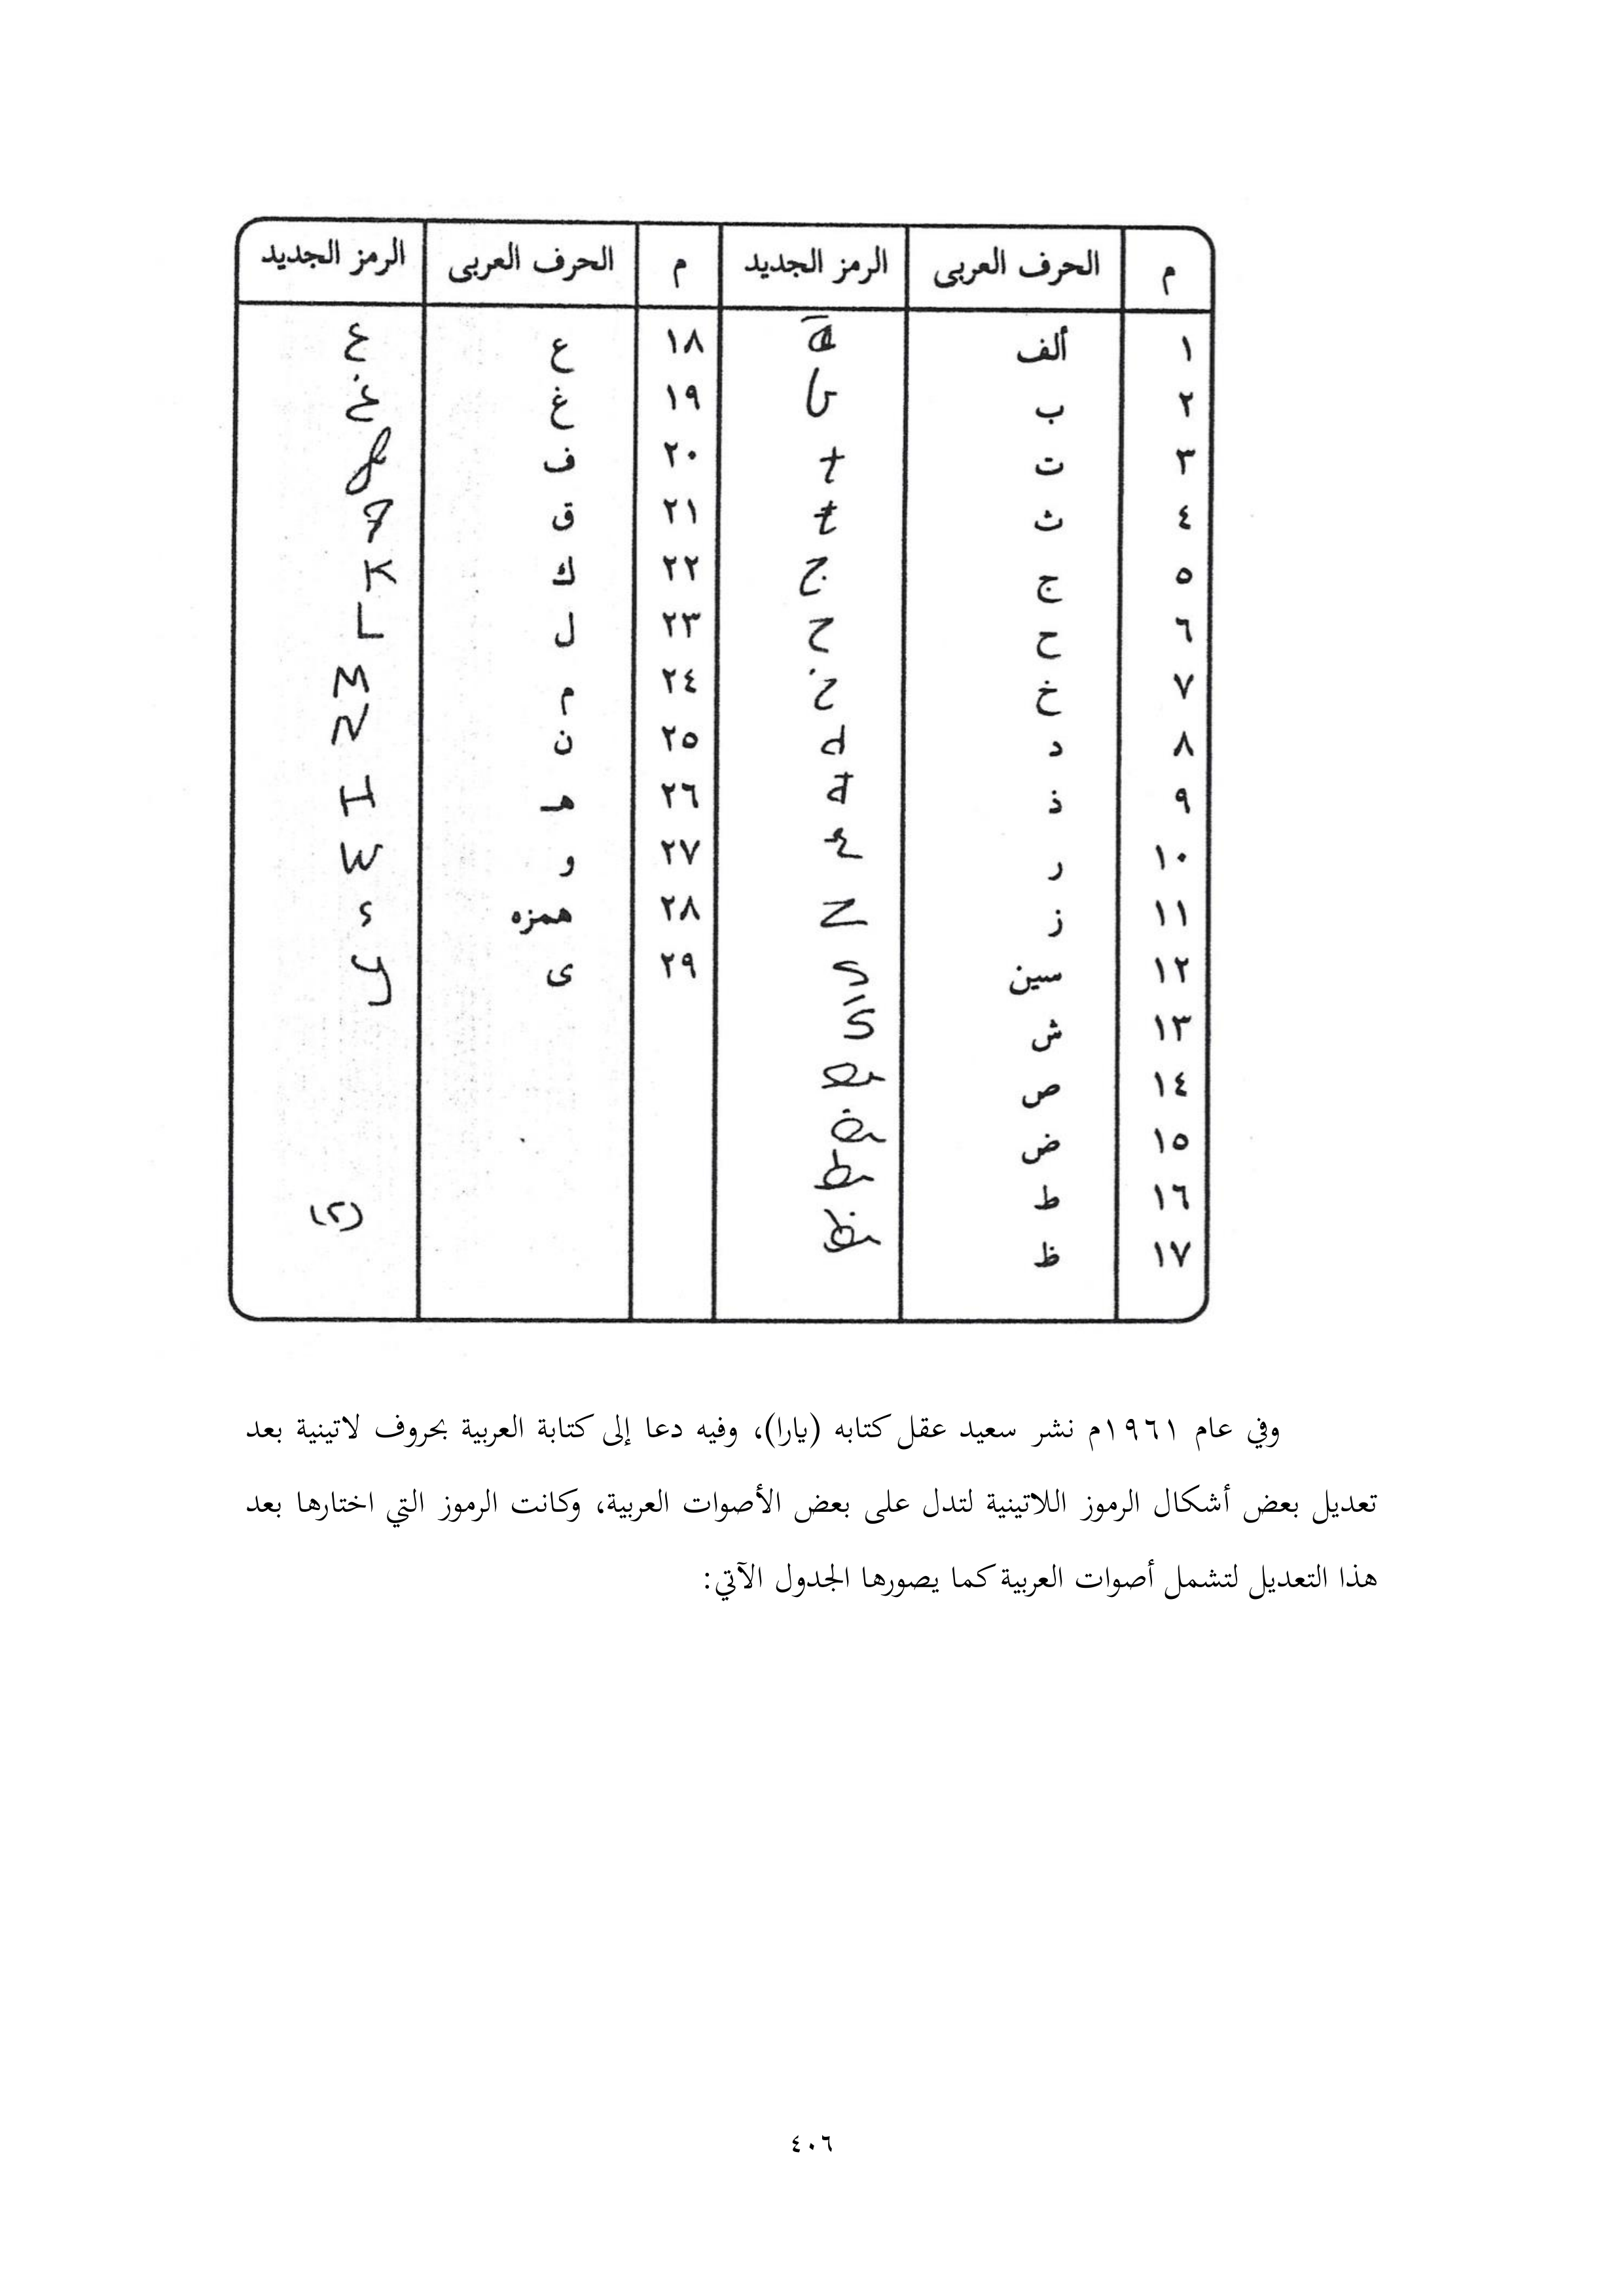 م الحرف العربى الرمز الجديد م الحرف العربى الرمز الجديد
١ ألف ā ١٨ ع ع
٢ ب b ١٩ غ غ
٣ ت t ٢٠ ف
٤ ث ŧ ٢١ ق
٥ ج ج ٢٢ ك K
٦ ح ح ٢٣ ل L
٧ خ خ ٢٤ م M
٨ د d ٢٥ ن N
٩ ذ đ ٢٦ هـ H
١٠ ر ٢٧ و W
١١ ز Z ٢٨ همزه ء
١٢ سين S ٢٩ ى y
١٣ ش S̄
١٤ ص
١٥ ض
١٦ ط
١٧ ظ
(٢)
وفي عام ١٩٦١م نشر سعيد عقل كتابه (يارا)، وفيه دعا إلى كتابة العربية بحروف لاتينية بعد
تعديل بعض أشكال الرموز اللاتينية لتدل على بعض الأصوات العربية، وكانت الرموز التي اختارها بعد
هذا التعديل لتشمل أصوات العربية كما يصورها الجدول الآتي:
٤٠٦